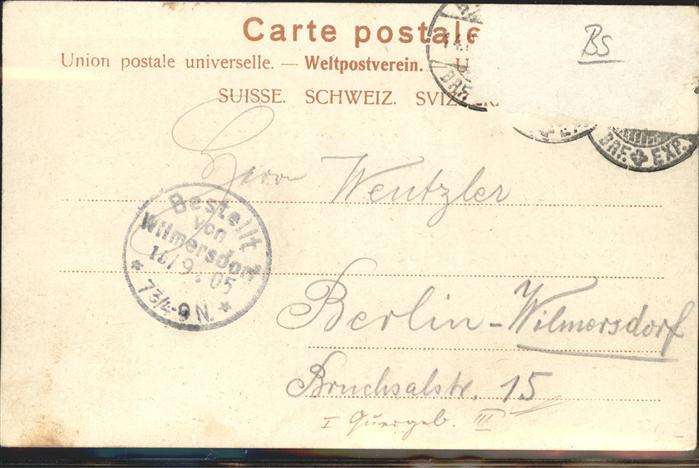 Carte postale
BS
Union postale universelle. — Weltpostverein.
SUISSE. SCHWEIZ.
BRF. EXP.
Herr Wentzler
Bestellt
von
Wilmersdorf
9. 05
7¾-9 N.
Berlin-Wilmersdorf
Bruchsalstr. 15
I Quergeb. III